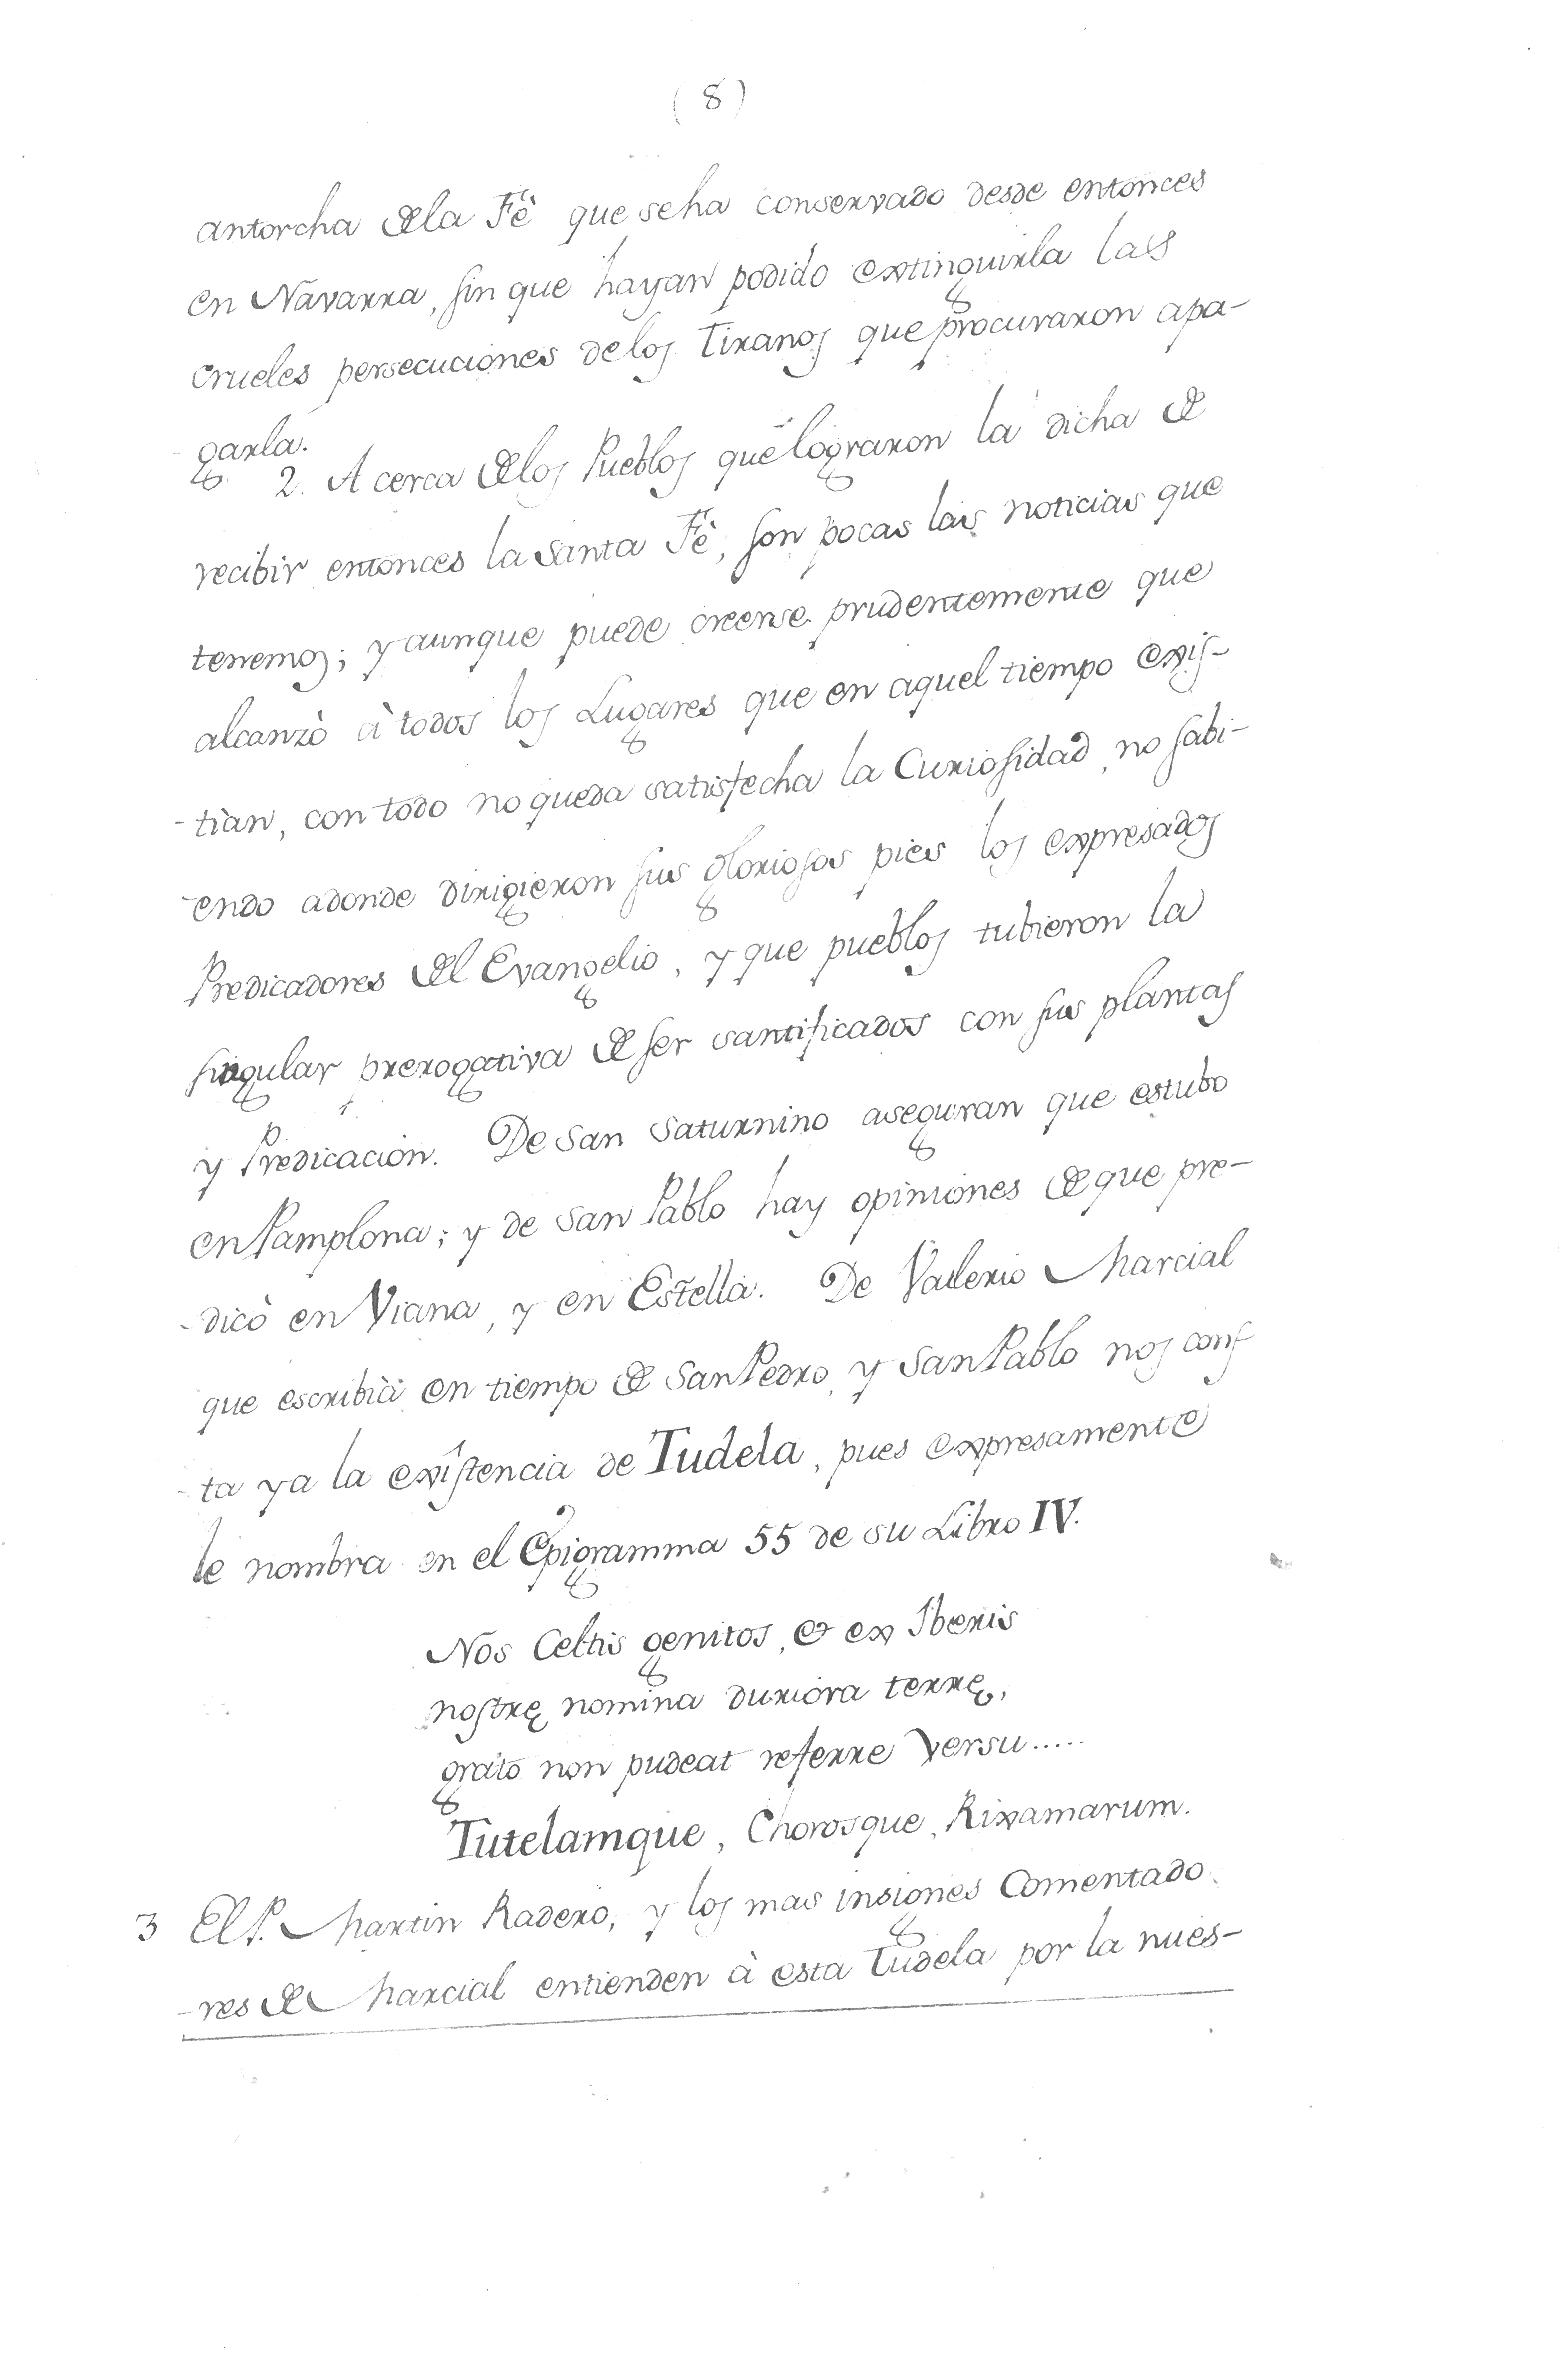 (8)
antorcha de la Fè que se ha conservado desde entonces
en Navarra, sin que hayan podido extinguirla las
crueles persecuciones de los Tiranos que procuraron apa-
garla.
2. Acerca de los Pueblos que lograron la dicha de
recibir entonces la Santa Fè, son pocas las noticias que
tenemos; y aunque puede creerse prudentemente que
alcanzò à todos los Lugares que en aquel tiempo exis-
-tian, con todo no queda satisfecha la Curiosidad, no sabi-
endo adonde dirigieron sus gloriosos pies los expresados
Predicadores del Evangelio, y que pueblos tubieron la
singular prerogativa de ser santificados con sus plantas
y Predicacion. De San Saturnino aseguran que estubo
en Pamplona; y de San Pablo hay opiniones de que pre-
-dicò en Viana, y en Estella. De Valerio Marcial
que escribia en tiempo de San Pedro, y San Pablo nos cons
-ta ya la existencia de Tudela, pues expresamente
le nombra en el Epigramma 55 de su Libro IV.
Nos Celtis genitos, & ex Iberis
nostrę nomina duriora terrę,
grato non pudeat referre versu.....
Tutelamque, Chorosque, Rixamarum.
3 El P. Martin Radero, y los mas insignes Comentado
-res de Marcial entienden à esta Tudela por la nues-